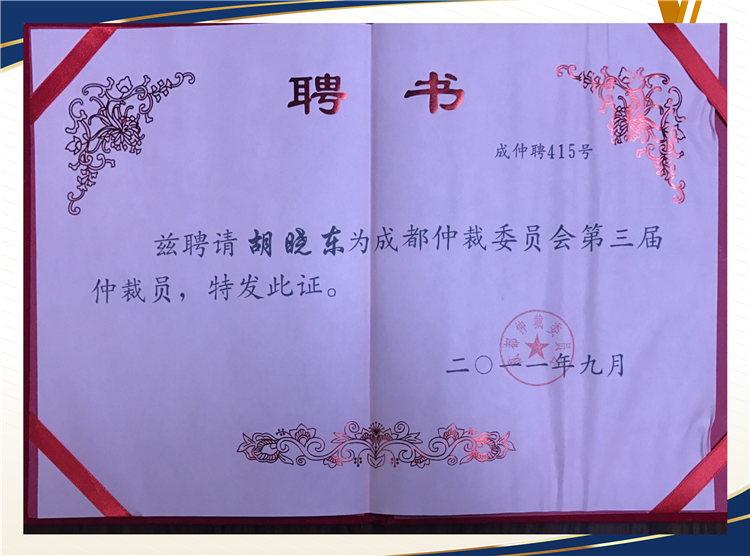 聘 书
成仲聘415号
兹聘请胡晓东为成都仲裁委员会第三届
仲裁员，特发此证。
二〇一一年九月
成都仲裁委员会